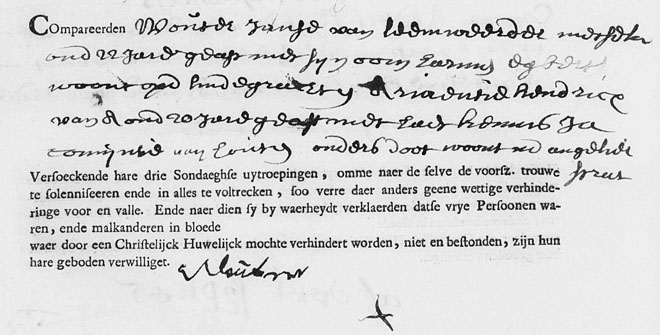 Compareerden Wouter Janse van leeuwerden metselr
oud 22 Jare geass met syn oom harmen egberts
woont opd lindegracht & Ariaentie hendricx
van A oud 20 Jare geass met haer kennis Ja
comijntie van houten ouders doot woont ind angeliers
straet
Versoeckende hare drie Sondaeghse uytroepingen, omme naer de selve de voorsz. trouwe
te solenniseeren ende in alles te voltrecken, soo verre daer anders geene wettige verhinde-
ringe voor en valle. Ende naer dien sy by waerheydt verklaerden datse vrye Persoonen wa-
ren, ende malkanderen in bloede
waer door een Christelijck Huwelijck mochte verhindert worden, niet en bestonden, zijn hun
hare geboden verwilliget.